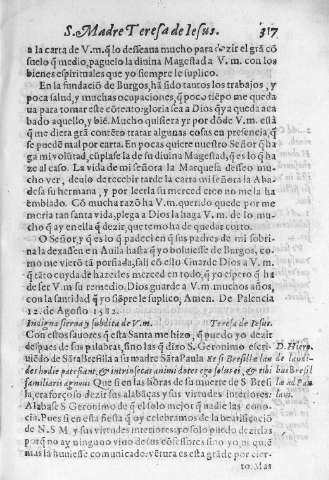 S. Madre Teresa de Iesus. 317
a la carta de V.m. q̃ lo desseaua mucho para dezir el grã cõ
suelo q̃ me dio, paguelo la diuina Magestad a V. m. con los
bienes espirituales que yo siempre le suplico.
En la fundaciõ de Burgos, hã sido tantos los trabajos, y
poca salud, y muchas ocupaciones, q̃ poco tiẽpo me queda
ua para tomar este cõtento: gloria sea a Dios q̃ ya queda aca
bado aquello, y biẽ. Mucho quisiera yr por dõde V.m. està
q̃ me diera grã contẽto tratar algunas cosas en presencia, q̃
se puedẽ mal por carta. En pocas quiere nuestro Señor q̃ ha
ga mi volũtad, cũplase la de su diuina Magestad, q̃ es lo q̃ ha
ze al caso. La vida de mi señora la Marquesa desseo mu-
cho ver, de
de su hermana, y por leerla su merced creo no me la ha
embiado. Cõ mucha razõ ha V.m. querido quede por me
moria tan santa vida, plega a Dios la haga V.m. de lo mu-
cho q̃ ay en ella q̃ dezir, que temo ha de quedar corto.
O Señor, y q̃ es lo q̃ padeci en q̃ sus padres de mi sobri-
na la dexassen en Auila hasta q̃ yo boluiesse de Burgos, co-
mo me vierõ tã porfiada, sali cõ ello Guarde Dios a V. m.
q̃ tãto cuyda de hazerles merced en todo, q̃ yo espero q̃ ha
de ser V.m. su remedio. Dios guarde a V.m. muchos años,
con la santidad q̃ yo siẽpre le suplico, Amen. De Palencia
12. de Agosto 1582.
Indigna sierua y subdita de V.m. Teresa de Iesus.
Con estos fauores q̃ esta Santa me hizo, q̃ puedo yo dezir
despues de sus palabras, sino las q̃ dixo S. Geronimo escri-
uiẽdo de a su madre
D. Hiero.
familiaris agnoui Que si en las hõras de su muerte de S Bresi
la, era forçoso dezir sus alabãças y sus virtudes interiores:
Alabase S Geronimo de q̃ el solo mejor q̃ nadie las cono-
cia. Pues si en esta fiesta q̃ oy celebramos de la beatificaciõ
de N. S M y sus virtudes interiores: yo solo puedo dezirlas
porq̃ no ay ninguno viuo de sus cõfessores sino yo, ni quiẽ
mas la huuiesse comunicado: vẽtura es esta grãde por cier-
to. Mas